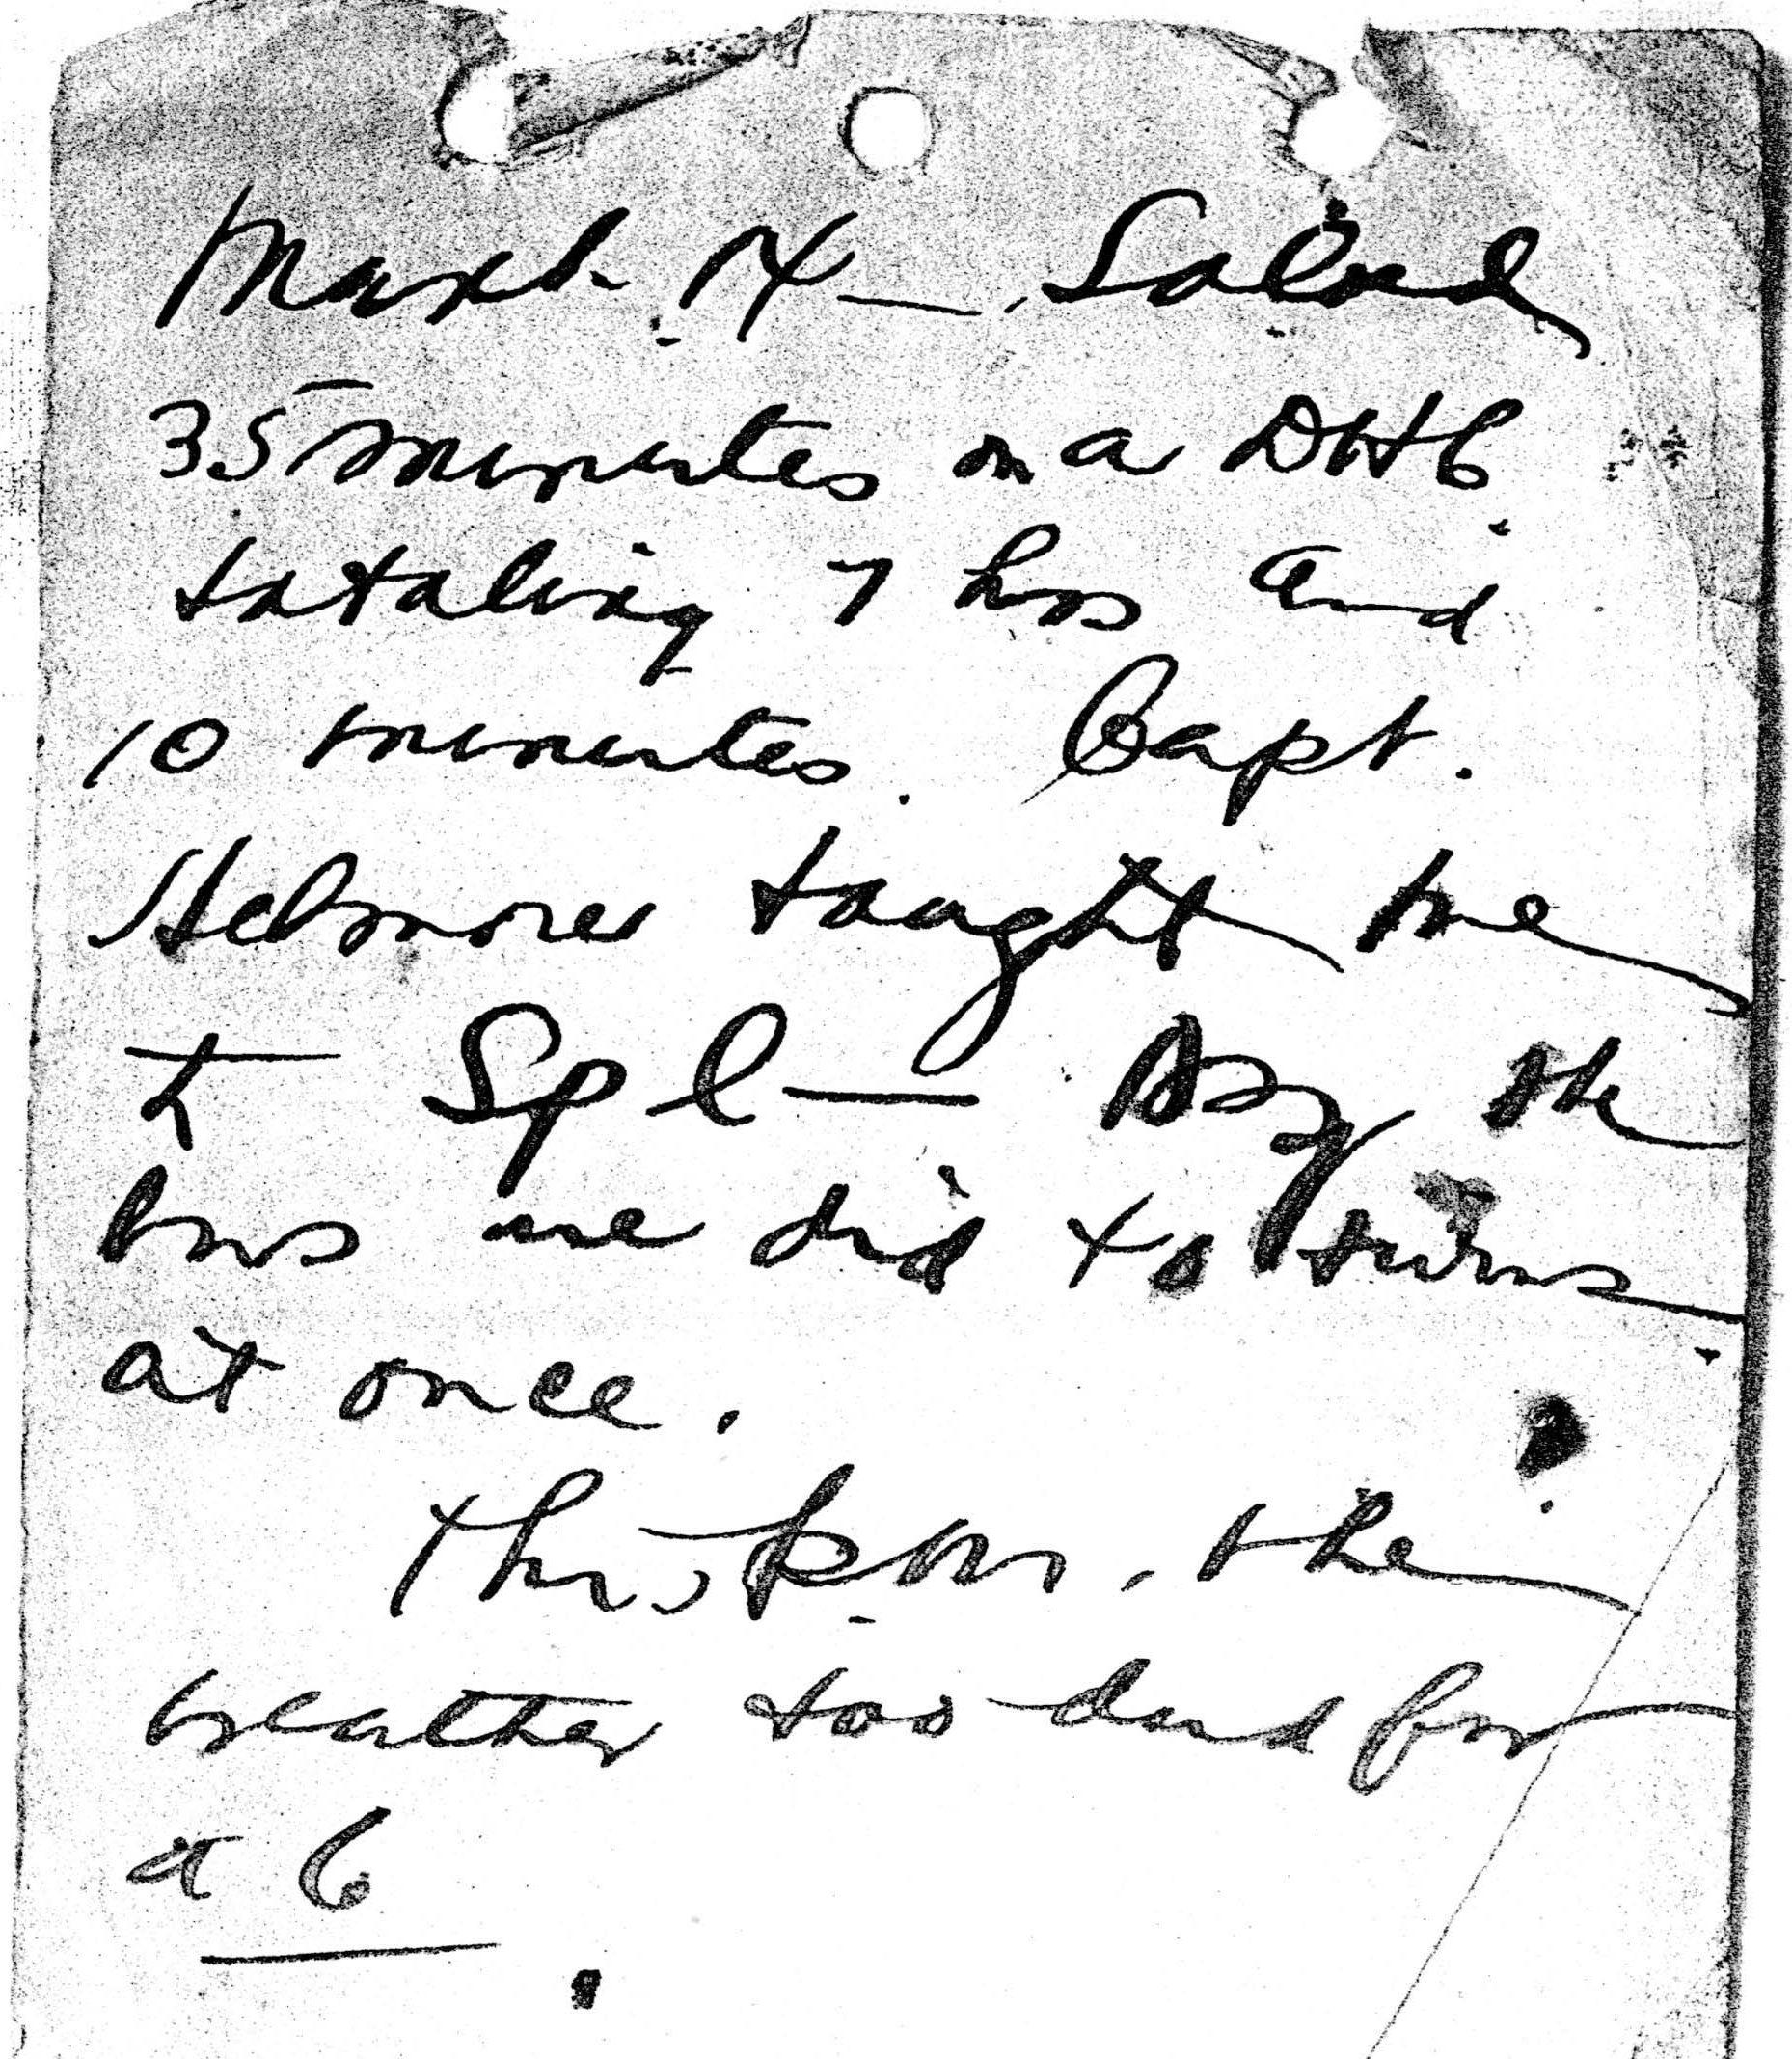 March. 14 — Soloed
35 minutes on a DH6
totaling 7 hrs and
10 minutes. Capt.
Helmore taught me
to Spl — By the
we did 10 turns
at once.
This p.m. the
weather too bad for
a 6